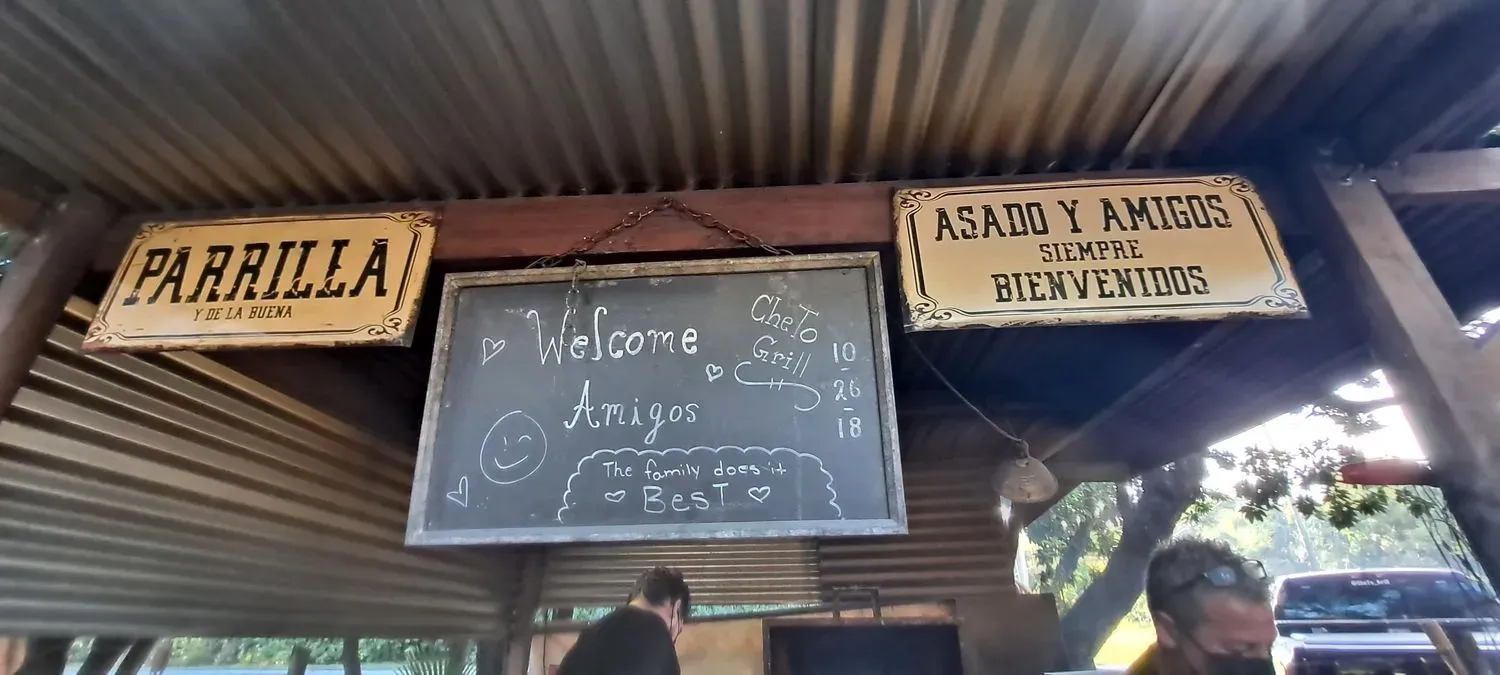 PARRILLA
Y DE LA BUENA
Welcome
Amigos
The family does it
BesT
CheTo
Grill
10
-
26
-
18
ASADO Y AMIGOS
SIEMPRE
BIENVENIDOS